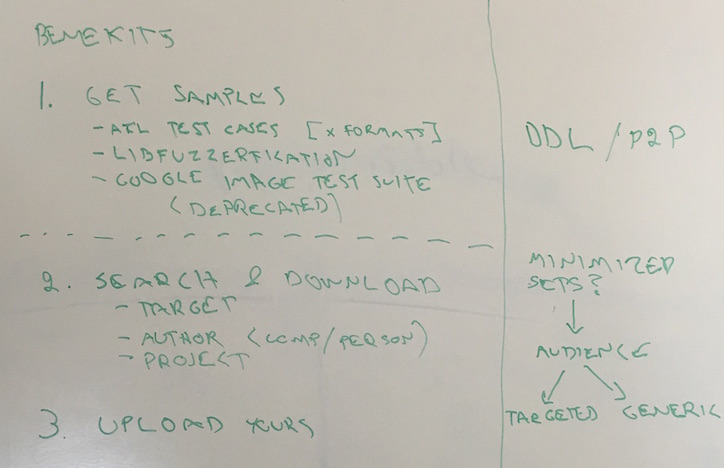 BENEKITS
1. GET SAMPLES
- AFL TEST CASES [x FORMATS]
- LIBFUZZERFICATION
- GOOGLE IMAGE TEST SUITE
(DEPRECATED)
2. SEARCH & DOWNLOAD
- TARGET
- AUTHOR (COMP/PERSON)
- PROJECT
3. UPLOAD YOURS
DDL / P2P
MINIMIZED
SETS?
AUDIENCE
TARGETED GENERIC